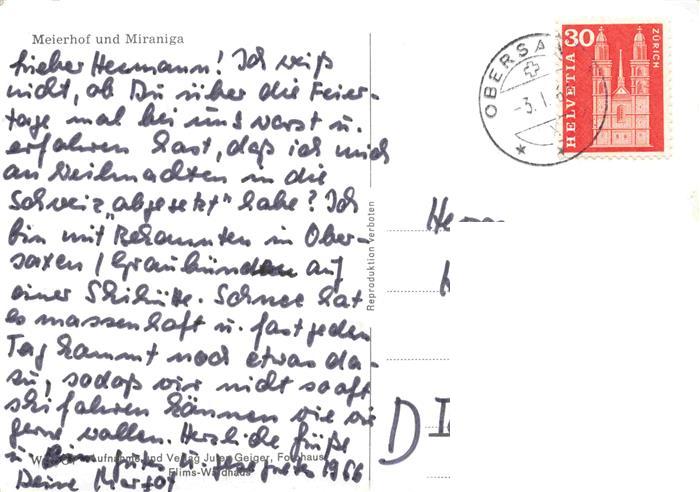 Meierhof und Miraniga
Lieber Hermann! Ich weiß
nicht, ob Du über die Feier-
tage mal bei uns warst u.
erfahren hast, daß ich mich
an Weihnachten in die
Schweiz „abgesetzt“ habe? Ich
bin mit Bekannten in Ober-
saxen / Graubünden auf
einer Skihütte. Schnee hat
es massenhaft u. fast jeden
Tag kommt noch etwas da-
zu, sodaß wir nicht so oft
skifahren können wie wir
gerne wollen. Herzliche Grüße
u. ein gutes u. 1966
Deine Margot
Aufnahme und Verlag Jules Geiger, Fotohaus
Flims-Waldhaus
Reproduktion verboten
OBERSA
-3.1.
30
HELVETIA
ZÜRICH
He
D